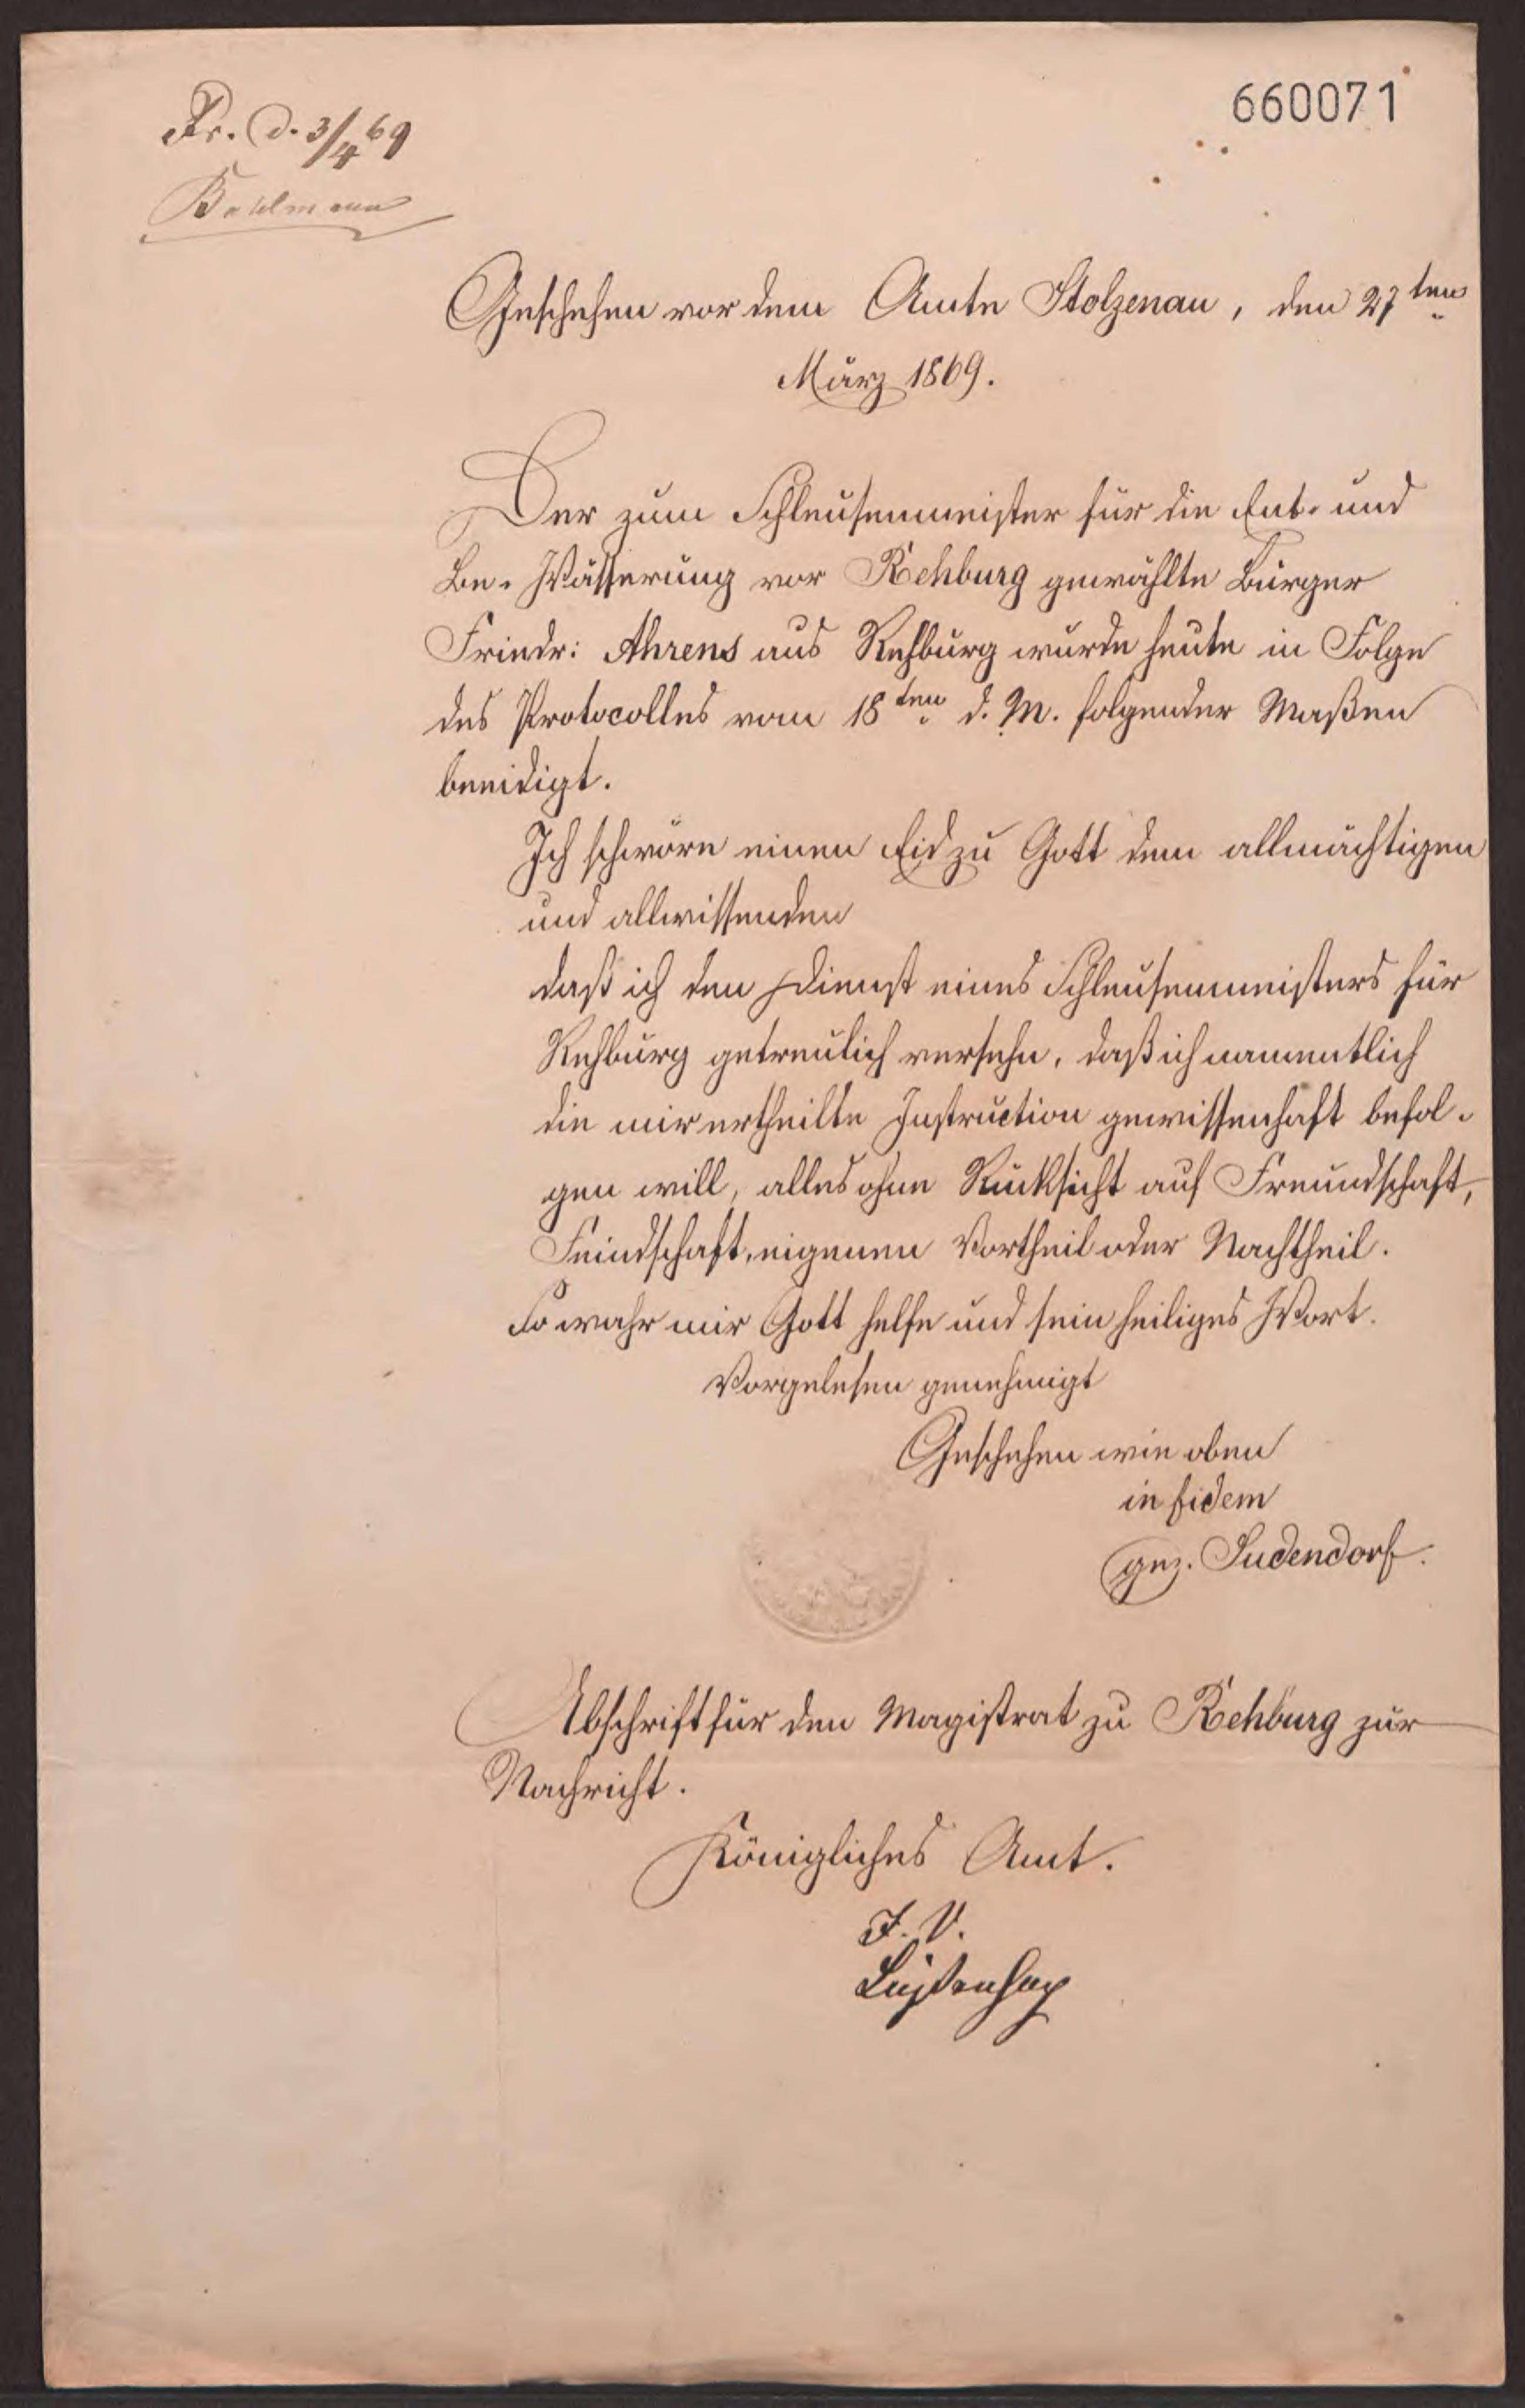 660071
Pr. d. 3/4 69
Geschehen vor dem Amte Stolzenau, den 27ten
März 1869.
Der zum Schleusenmeister für die Ent- und
Be-Wässerung vor Rehburg gewählte Bürger
Friedr: Ahrens aus Rehburg wurde heute in Folge
des Protocolles vom 18ten d. M. folgender Maßen
beeidigt.
Ich schwöre einen Eid zu Gott dem allmächtigen
und allwissenden
daß ich den Dienst eines Schleusenmeisters für
Rehburg getreulich versehe, daß ich namentlich
die mir ertheilte Instruction gewissenhaft befol-
gen will, alles ohne Rücksicht auf Freundschaft,
Feindschaft, eigenen Vortheil oder Nachtheil.
So wahr mir Gott helfe und sein heiliges Wort.
Vorgelesen genehmigt
Geschehen wie oben
in fidem
gez. Sudendorf.
Abschrift für den Magistrat zu Rehburg zur
Nachricht.
Königliches Amt.
I. V.